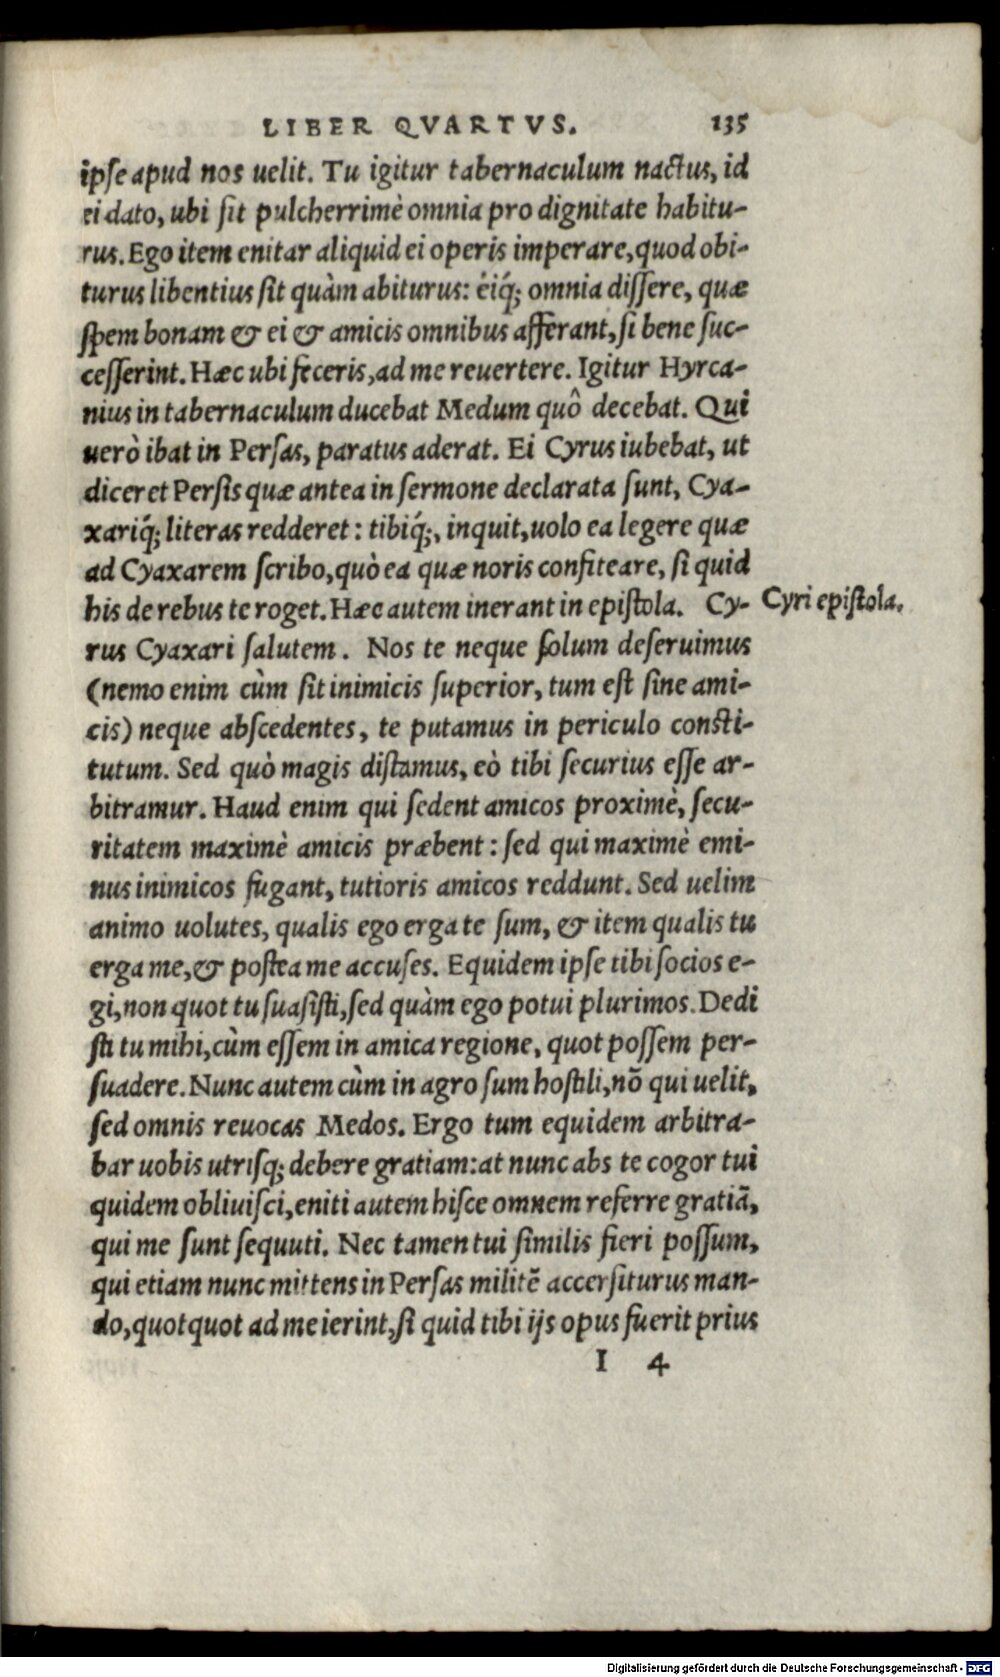 LIBER QVARTVS. 135
ipse apud nos uelit. Tu igitur tabernaculum nactus, id
ei dato, ubi sit pulcherrimè omnia pro dignitate habitu-
rus. Ego item enitar aliquid ei operis imperare, quod obi-
turus libentius sit quàm abiturus: eíq; omnia dissere, quæ
spem bonam & ei & amicis omnibus afferant, si bene suc-
cesserint. Hæc ubi feceris, ad me reuertere. Igitur Hyrca-
nius in tabernaculum ducebat Medum quô decebat. Qui
uerò ibat in Persas, paratus aderat. Ei Cyrus iubebat, ut
diceret Persis quæ antea in sermone declarata sunt, Cya-
xariq́; literas redderet: tibiq́;, inquit, uolo ea legere quæ
ad Cyaxarem scribo, quò ea quæ noris confiteare, si quid
his de rebus te roget. Hæc autem inerant in epistola. Cy-
Cyri epistola.
rus Cyaxari salutem. Nos te neque solum deseruimus
(nemo enim cùm sit inimicis superior, tum est sine ami-
cis) neque abscedentes, te putamus in periculo consti-
tutum. Sed quò magis distamus, eò tibi securius esse ar-
bitramur. Haud enim qui sedent amicos proximè, secu-
ritatem maximè amicis præbent: sed qui maximè emi-
nus inimicos fugant, tutioris amicos reddunt. Sed uelim
animo uolutes, qualis ego erga te sum, & item qualis tu
erga me, & postea me accuses. Equidem ipse tibi socios e-
gi, non quot tu suasisti, sed quàm ego potui plurimos. Dedi
sti tu mihi, cùm essem in amica regione, quot possem per-
suadere. Nunc autem cùm in agro sum hostili, nō qui uelit,
sed omnis reuocas Medos. Ergo tum equidem arbitra-
bar uobis utrisq; debere gratiam: at nunc abs te cogor tui
quidem obliuisci, eniti autem hisce omnem referre gratiā,
qui me sunt sequuti. Nec tamen tui similis fieri possum,
qui etiam nunc mittens in Persas militē accersiturus man-
do, quotquot ad me ierint, si quid tibi ijs opus fuerit prius
I 4
Digitalisierung gefördert durch die Deutsche Forschungsgemeinschaft - DFG